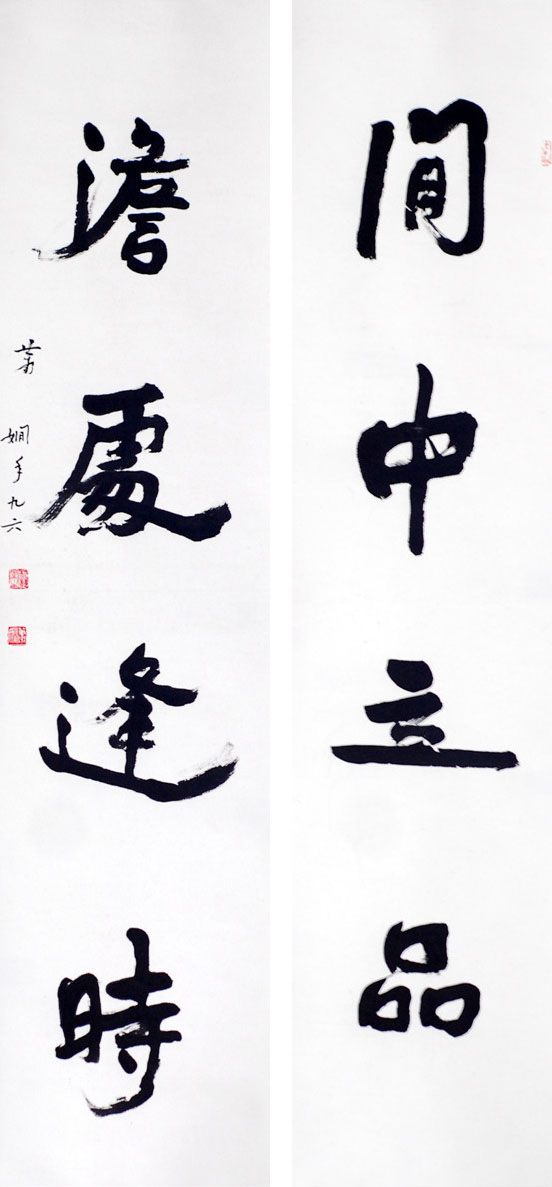 閒中立品
澹處逢時
蕭嫻年九六